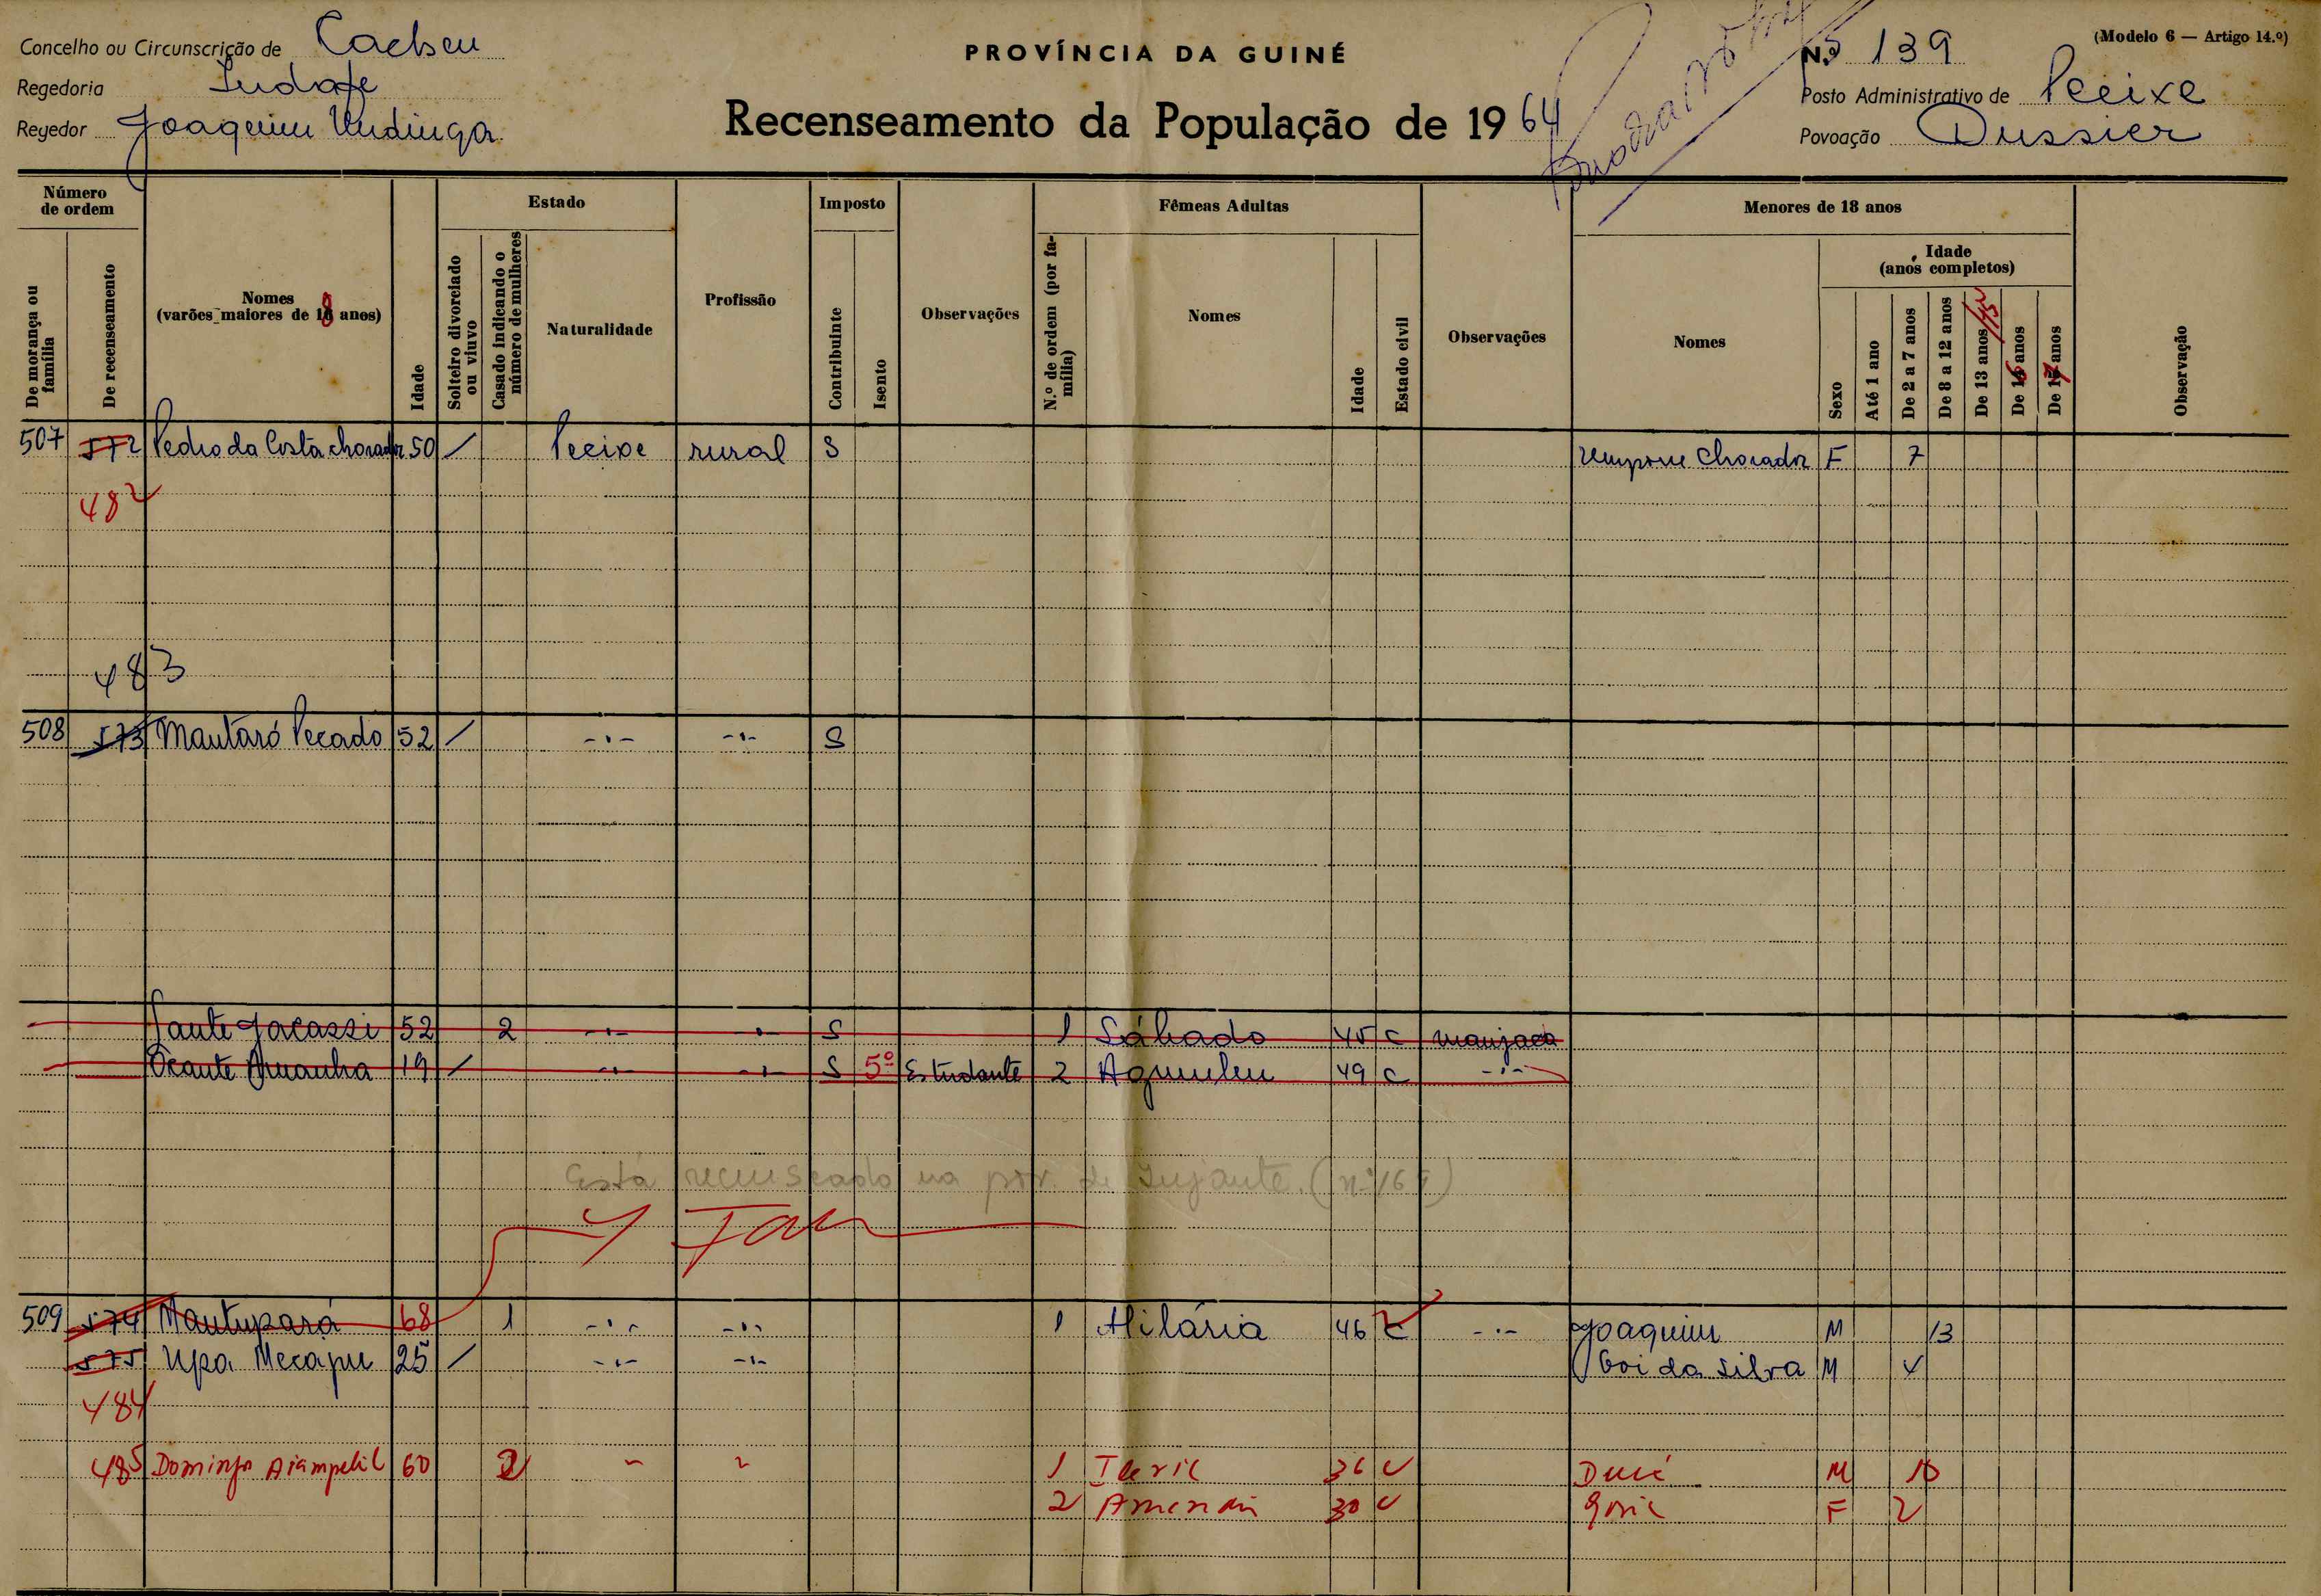 Concelho ou Circunscrição de Cacheu
Regedoria
Regedor Joaquim
PROVÍNCIA DA GUINÉ
Recenseamento da População de 1964
(Modelo 6 — Artigo 14.º)
N.º 139
Posto Administrativo de Pecixe
Povoação Dussier
Número de ordem
De morança ou família
De recenseamento
Nomes
(varões maiores de 18 anos)
Idade
Estado
Solteiro divorciado ou viuvo
Casado indicando o número de mulheres
Naturalidade
Profissão
Imposto
Contribuinte
Isento
Observações
Fêmeas Adultas
N.º de ordem (por família)
Nomes
Idade
Estado civil
Observações
Menores de 18 anos
Nomes
Sexo
Idade
(anos completos)
Até 1 ano
De 2 a 7 anos
De 8 a 12 anos
De 13 anos
De 16 anos
De 17 anos
Observação
507 572 Pedro da Costa Chorador 50 / Pecixe rural S Chorador F 7
482
483
508 573 Mantaró Pecado 52 / -.- -.- S
52 2 -.- -.- S 1 Sábado 45 C manjaca
19 / -.- -.- S 5º Estudante 2 49 C -.-
Está recenseado na pov. de
509 574 Mantupará 68 1 -.- -.- 1 Hilária 46 C -.- Joaquim M 13
575 Upa Mecapu 25 / -.- -.- da Silva M 4
484
485 Domingo 60 2 1 36 C M 10
2 30 C F 2